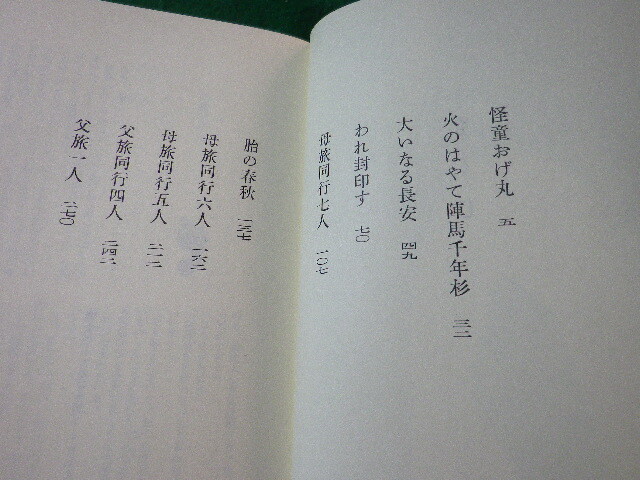 怪童おげ丸 五
火のはやて陣馬千年杉 三二
大いなる長安 四九
われ封印す 七〇
母旅同行七人 一〇七
胎の春秋 一三七
母旅同行六人 一六二
母旅同行五人 二一二
父旅同行四人 二四二
父旅一人 二七〇